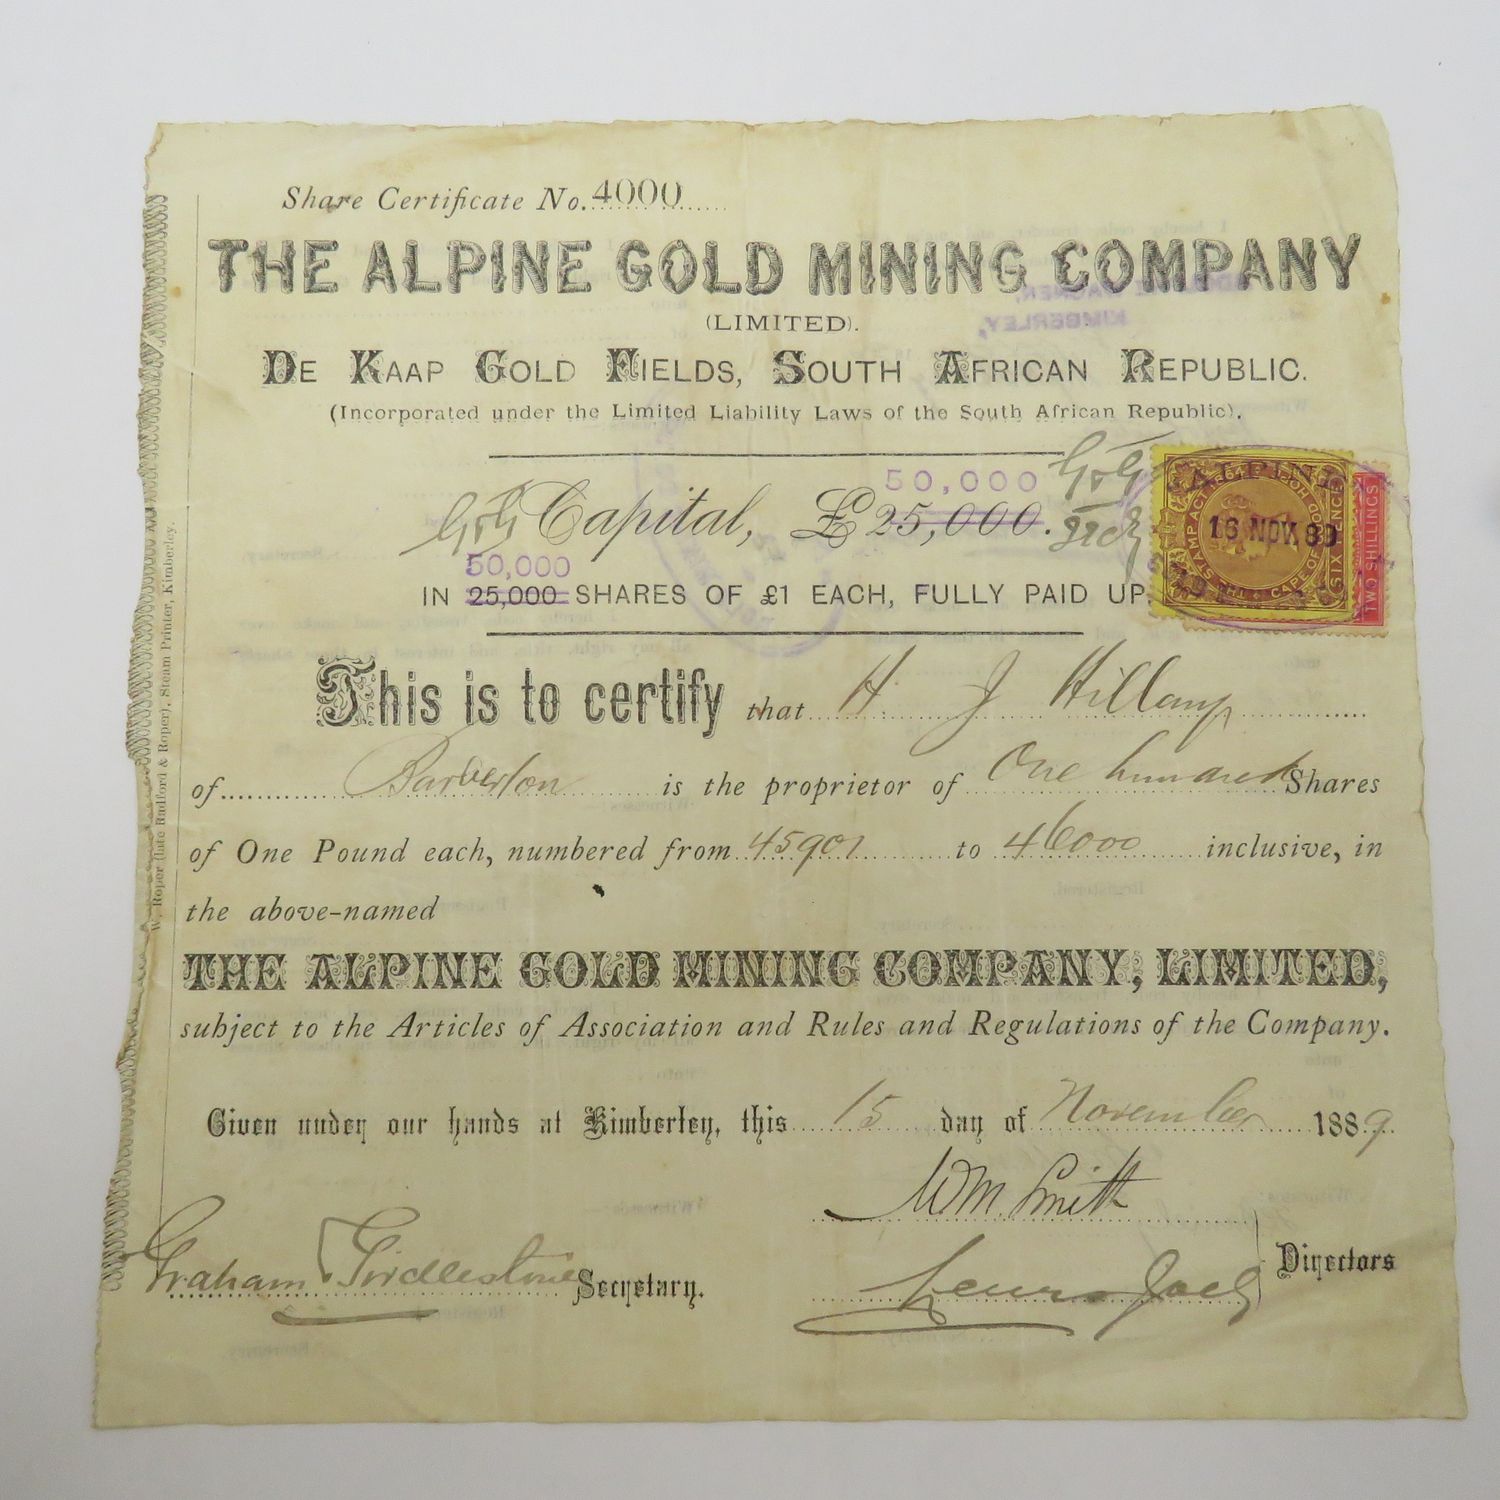 Share Certificate No. 4000
THE ALPINE GOLD MINING COMPANY
(LIMITED).
DE KAAP GOLD FIELDS, SOUTH AFRICAN REPUBLIC.
(Incorporated under the Limited Liability Laws of the South African Republic).
50,000 G&G
G&G Capital, £25,000.
50,000
IN 25,000 SHARES OF £1 EACH, FULLY PAID UP.
ALPINE
STAMP ACT 1864
CAPE OF GOOD HOPE
SIX PENCE
16 NOV. 89
TWO SHILLINGS
This is to certify that H. J. Hillary
of Barberton is the proprietor of One hundred Shares
of One Pound each, numbered from 45901 to 46000 inclusive, in
the above-named
THE ALPINE GOLD MINING COMPANY, LIMITED,
subject to the Articles of Association and Rules and Regulations of the Company.
Given under our hands at Kimberley, this 15 day of November 1889.
Wm. Smith
Graham Girdlestone Secretary.
Directors
W. Roper (late Radford & Roper), Steam Printer, Kimberley.
WAGNER,
KIMBERLEY,